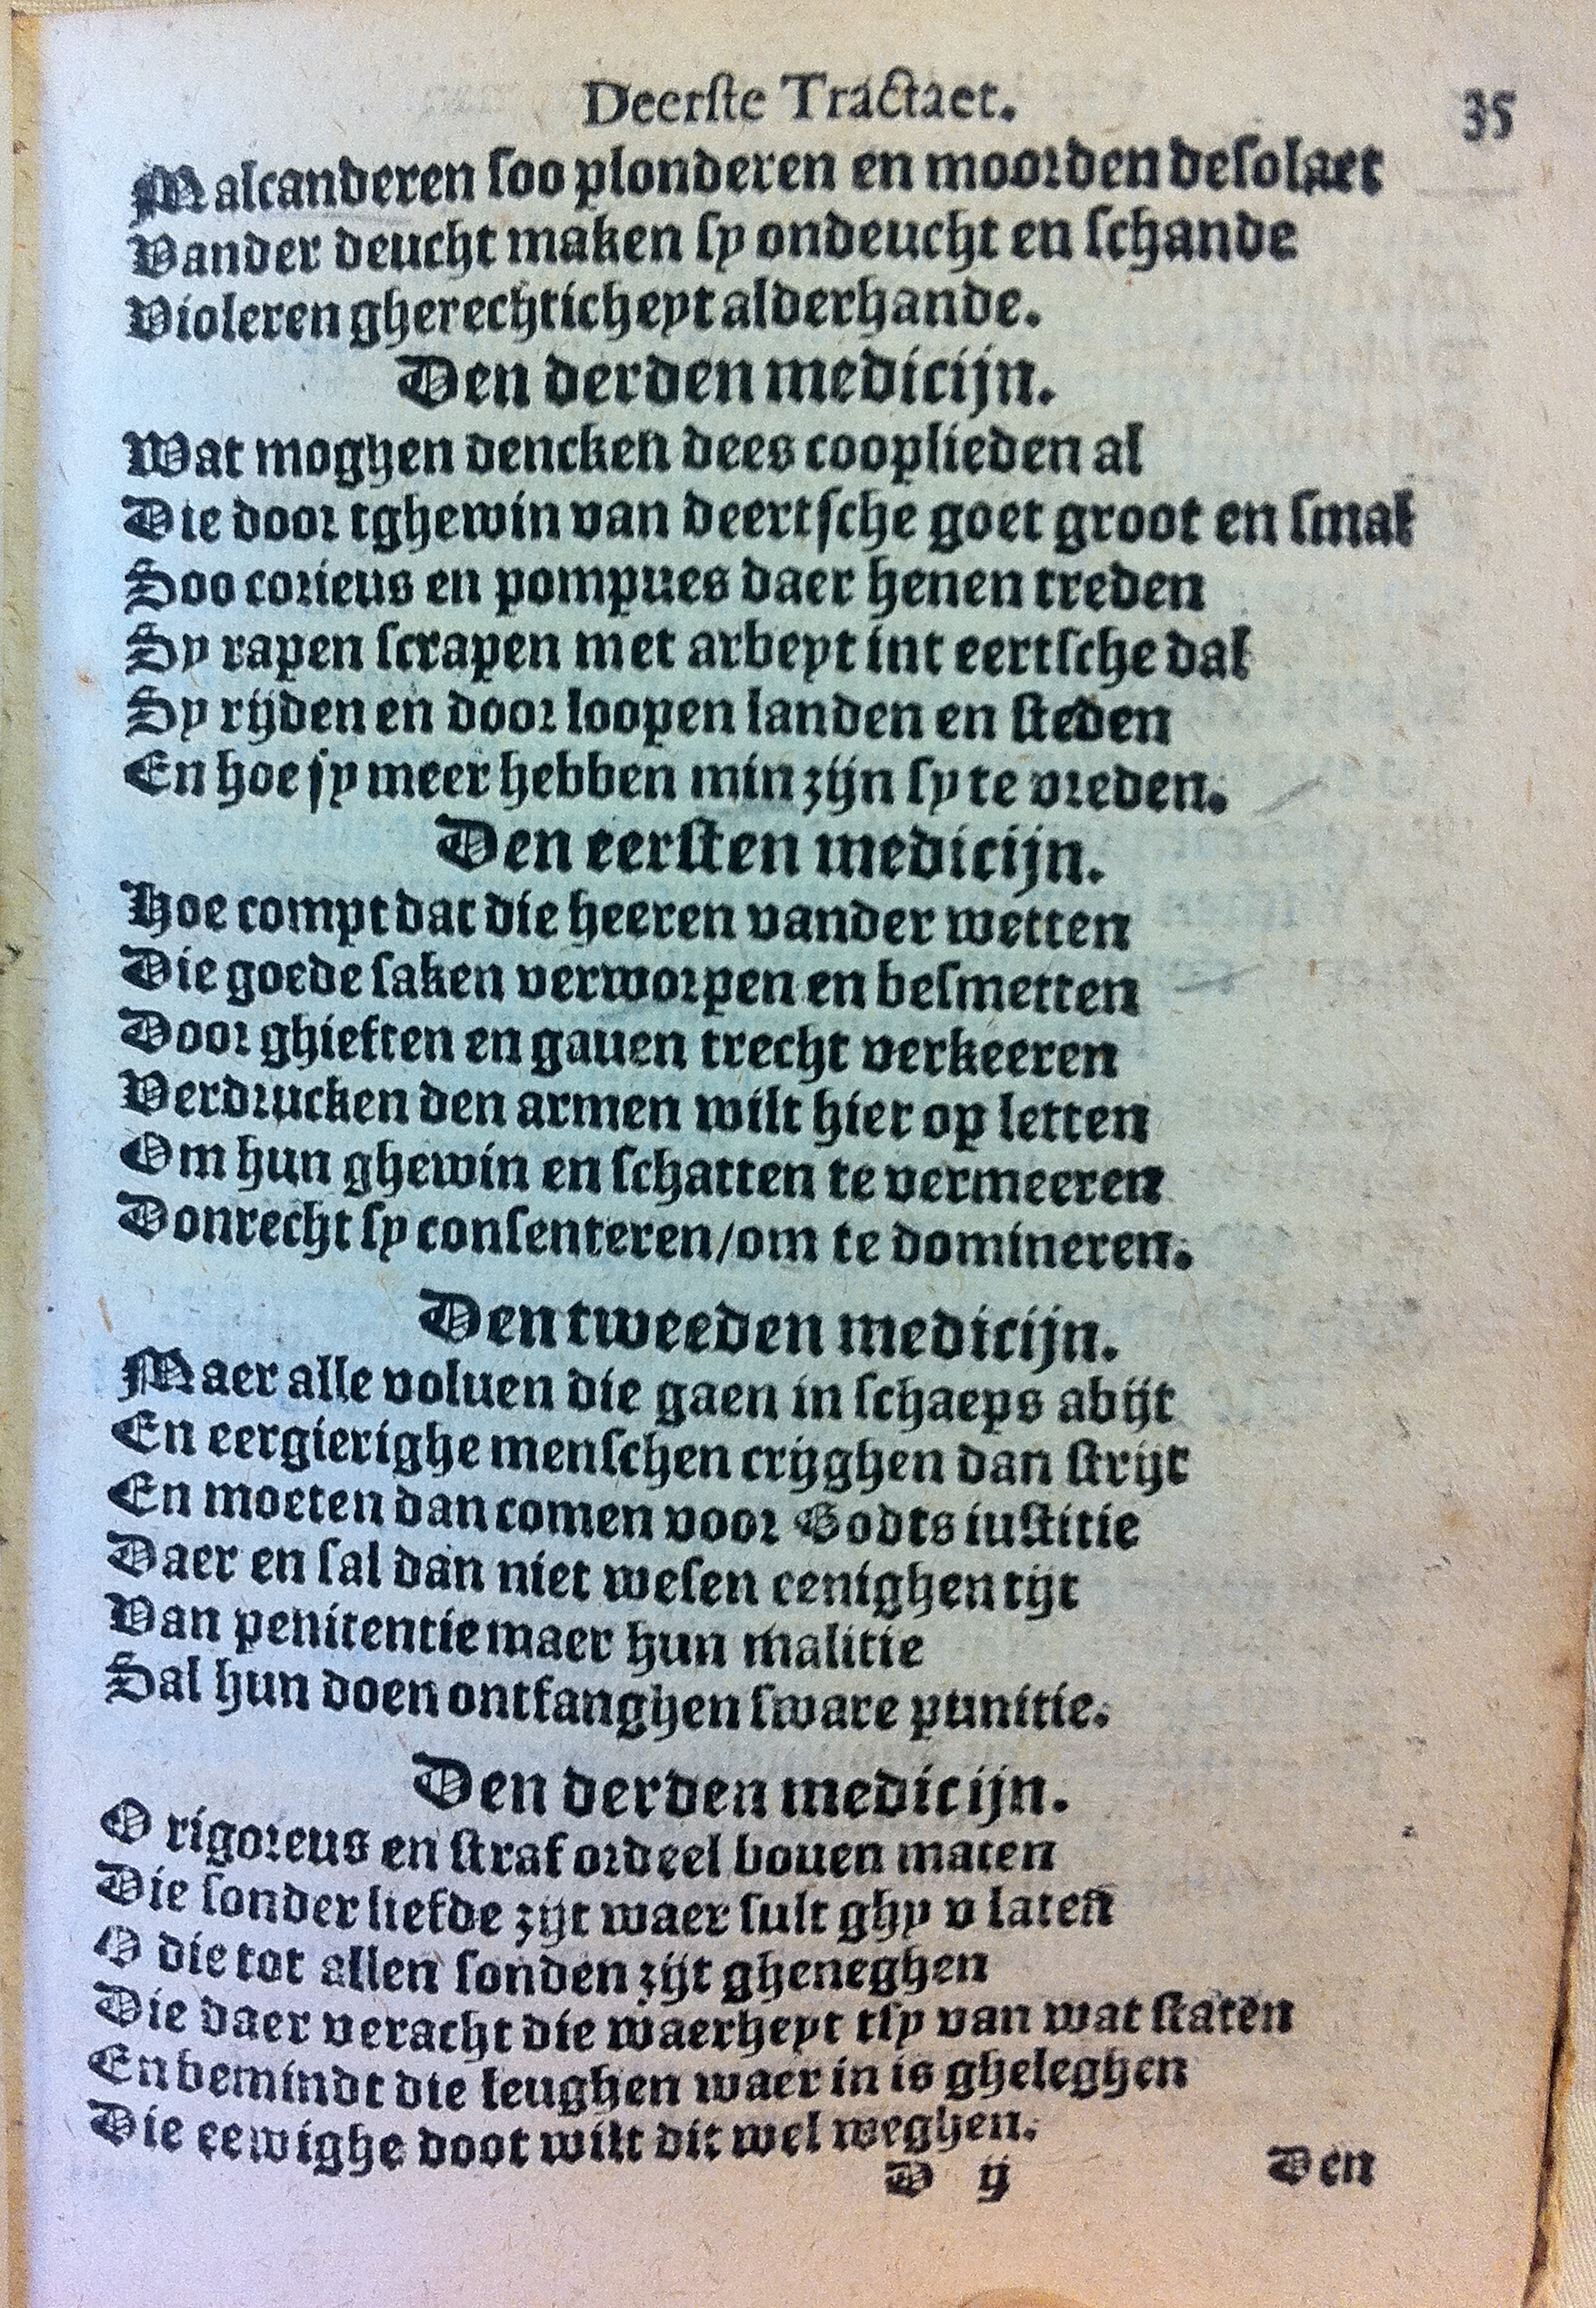 Deerſte Tractaet.
35
Malcanderen ſoo plonderen en moorden deſolaet
Vander deucht maken ſy ondeucht en ſchande
Violeren gherechticheyt alderhande.
Den derden medicijn.
Wat moghen dencken dees cooplieden al
Die door tghewin van deertſche goet groot en ſmal
Soo corieus en pompues daer henen treden
Sy rapen ſcrapen met arbeyt int eertſche dal
Sy rijden en door loopen landen en ſteden
En hoe ſy meer hebben min zijn ſy te vreden.
Den eerſten medicijn.
Hoe compt dat die heeren vander wetten
Die goede ſaken verworpen en beſmetten
Door ghieften en gauen trecht verkeeren
Verdrucken den armen wilt hier op letten
Om hun ghewin en ſchatten te vermeeren
Donrecht ſy conſenteren/om te domineren.
Den tweeden medicijn.
Maer alle voluen die gaen in ſchaeps abijt
En eergierighe menſchen crijghen dan ſtrijt
En moeten dan comen voor Godts iuſtitie
Daer en ſal dan niet weſen eenighen tijt
Van penitentie maer hun malitie
Sal hun doen ontfanghen ſware punitie.
Den derden medicijn.
O rigoreus en ſtraf ordeel bouen maten
Die ſonder liefde zijt waer ſult ghy v laten
O die tot allen ſonden zijt gheneghen
Die daer veracht die waerheyt tſy van wat ſtaten
En bemindt die leughen waer in is gheleghen
Die eewighe doot wilt dit wel weghen.
D ij
Den